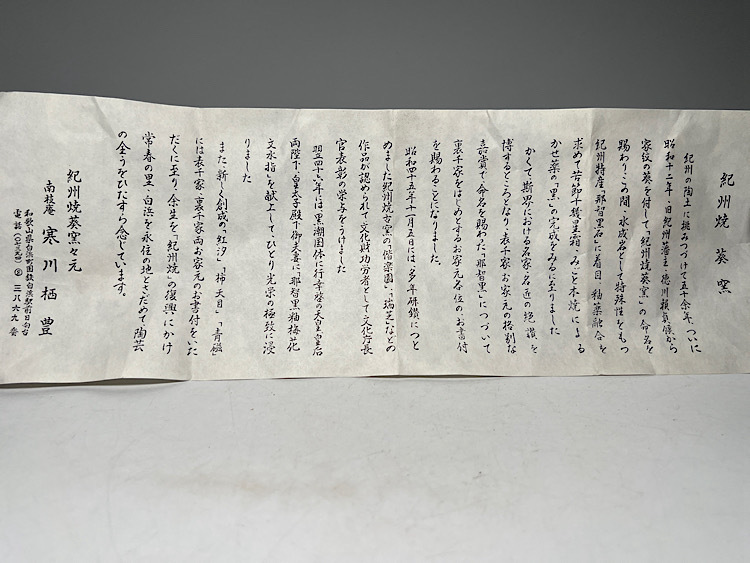 紀州焼 葵窯
紀州の陶土に挑みつづけて五十余年、ついに
昭和十二年、旧紀州藩主・徳川頼貞候から
家紋の葵を付して「紀州焼葵窯」の命名を
賜わりこの間、水成岩として特殊性をもつ
紀州特産「那智黒石」に着目 釉薬融合を
求めて苦節千棼星霜、みごと本焼による
かせ薬の「黒」の完成をみるに至りました
かくて、斯界における名家・名匠の推讃を
博するところとなり、表千家お家元の格別な
嘉賞で命名を賜わった「那智黒」につづいて
裏千家をはじめとするお家元各位の、お書付
を賜わることになりました。
昭和四十五年十一月五日には、多年研鑽につと
めました紀州焼古窯の「偕楽園」、「瑞芝」などの
作品が認められて文化財功労者として文化庁長
官表彰の栄与をうけました
翌四十六年には黒潮国体に行幸啓の天皇・皇后
両陛下、皇太子殿下御夫妻に、那智黒釉梅花
文水指」を献上して、ひとり光栄の極致に浸
りました
また新しく創成の「紅汐」「柿天目」、「青磁」
には表千家・裏千家両お家元のお書付をいた
だくに至り、余生を「紀州焼」の復興にかけ
常春の里・白浜を永住の地とさだめて、陶芸
の全うをひたすら念じています。
紀州焼葵窯々元
南枝庵 寒川栖豊
和歌山県白浜町国鉄白浜駅前日向台
電話 三八六九番